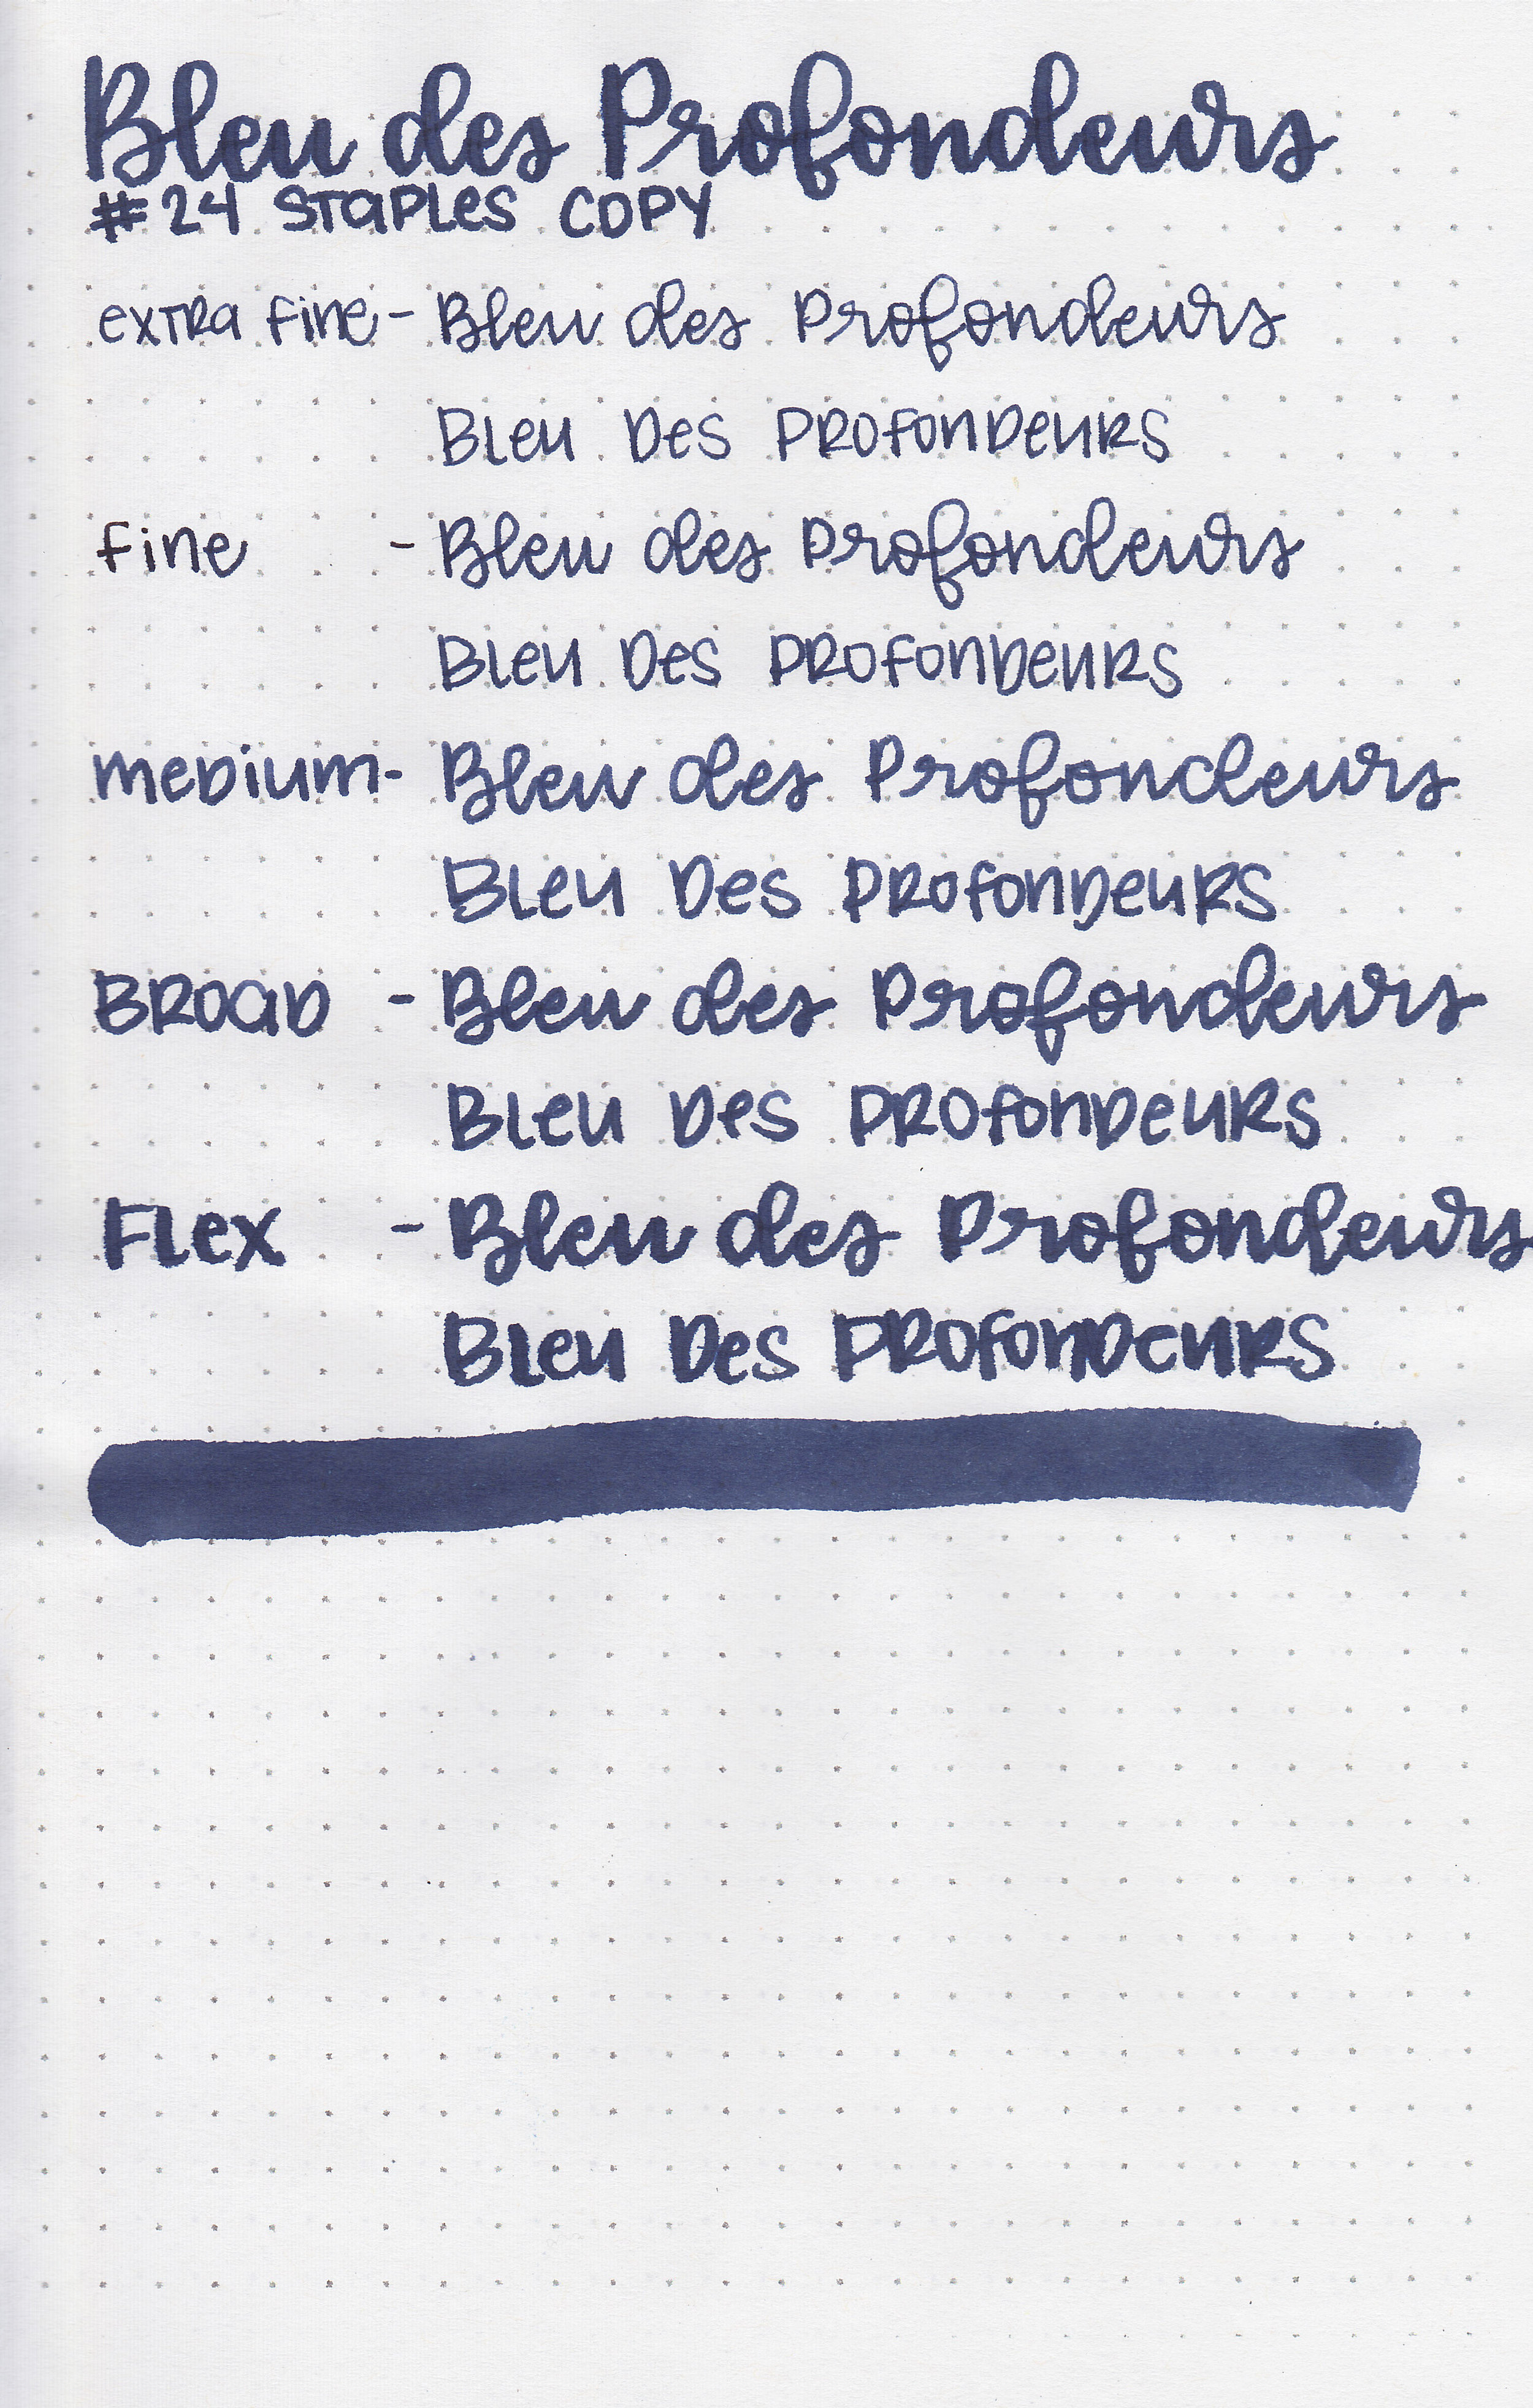 Bleu des Profondeurs
#24 Staples Copy
extra fine - Bleu des Profondeurs
Bleu Des Profondeurs
fine - Bleu des Profondeurs
Bleu Des Profondeurs
medium - Bleu des Profondeurs
Bleu Des Profondeurs
Broad - Bleu des Profondeurs
Bleu Des Profondeurs
Flex - Bleu des Profondeurs
Bleu Des Profondeurs